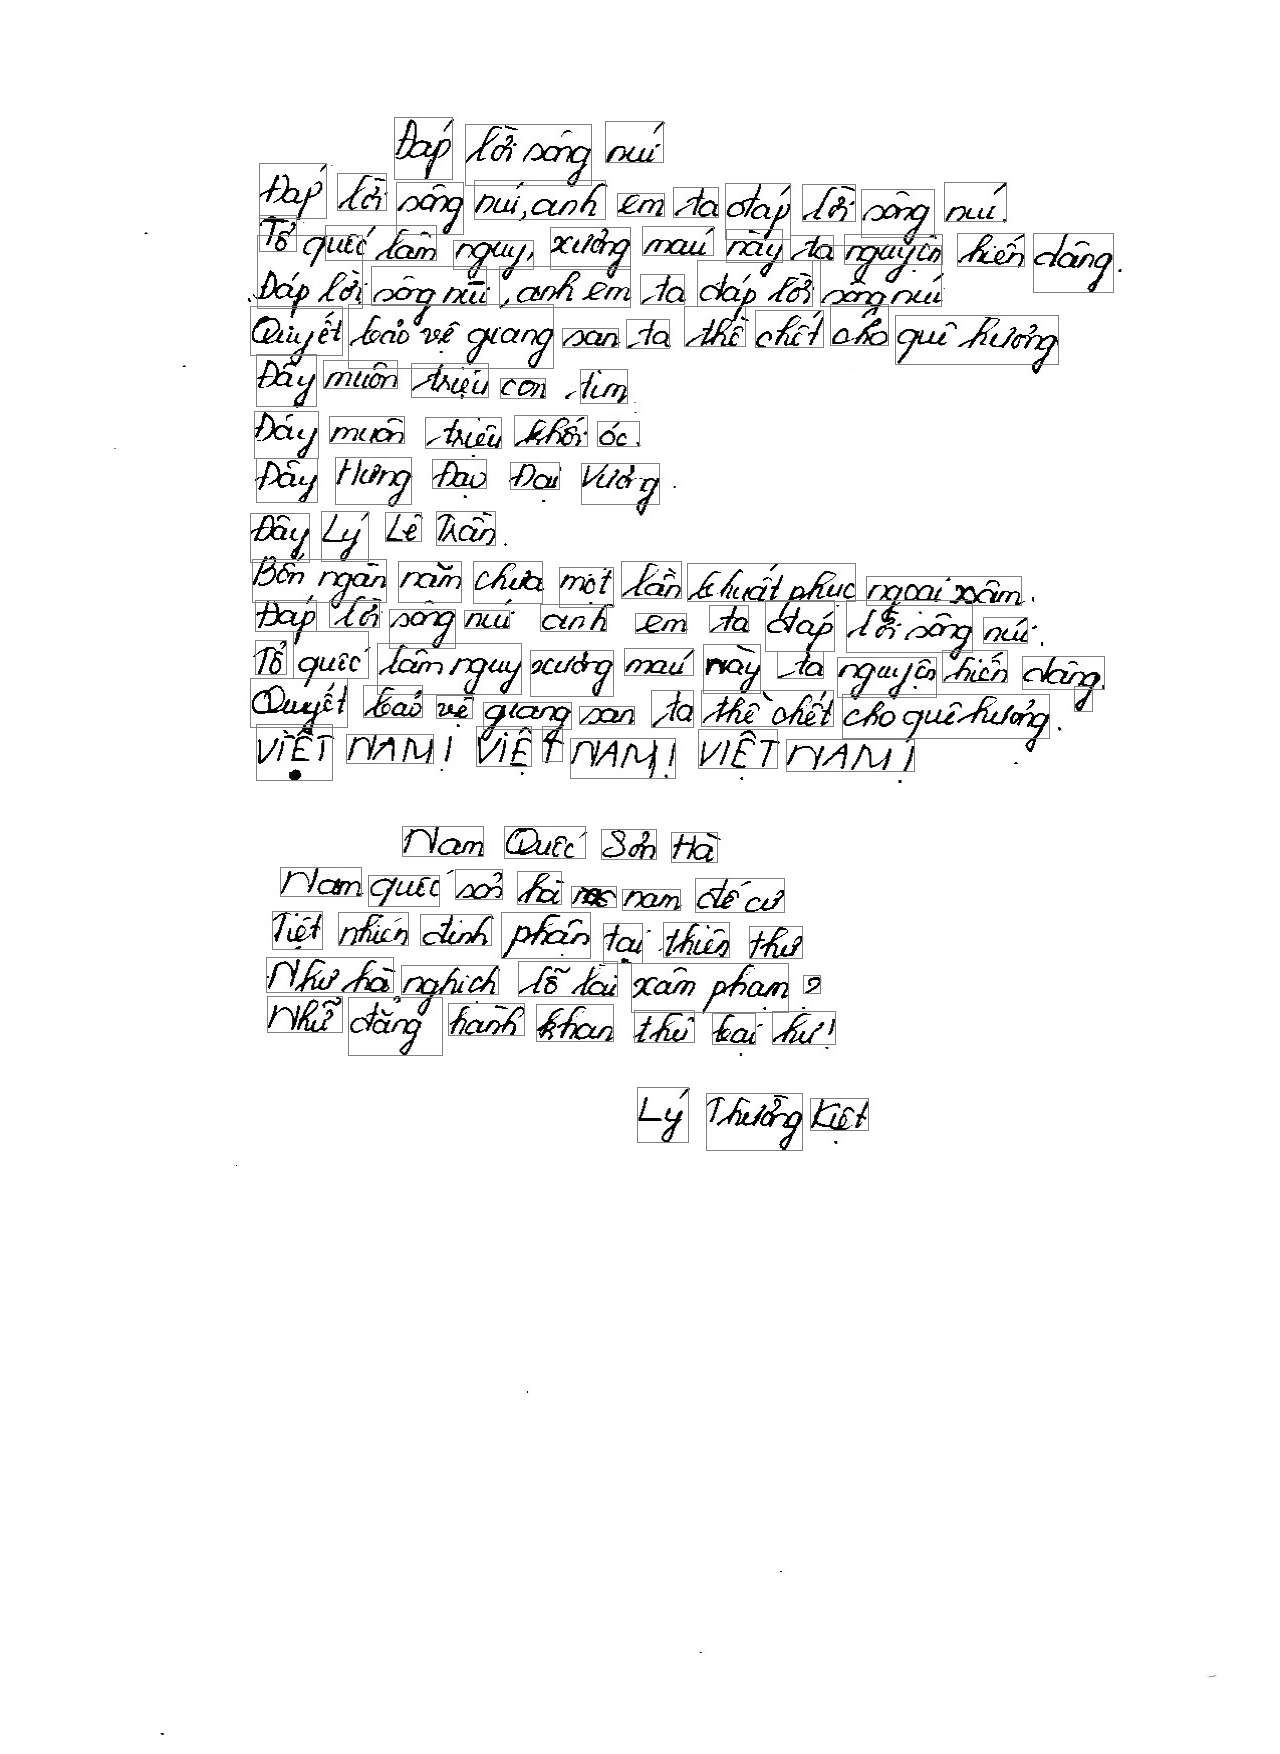 Đáp lời sông núi
Đáp lời sông núi, anh em ta đáp lời sông núi.
Tổ quốc lâm nguy, xương máu này ta nguyện hiến dâng.
Đáp lời sông núi, anh em ta đáp lời sông núi
Quyết bảo vệ giang san ta thề chết cho quê hương
Đây muôn triệu con tim
Đây muôn triệu khối óc.
Đây Hưng Đạo Đại Vương.
Đây Lý Lê Trần.
Bốn ngàn năm chưa một lần khuất phục ngoại xâm.
Đáp lời sông núi anh em ta đáp lời sông núi.
Tổ quốc lâm nguy xương máu này ta nguyện hiến dâng.
Quyết bảo vệ giang san ta thề chết cho quê hương.
VIỆT NAM! VIỆT NAM! VIỆT NAM!
Nam Quốc Sơn Hà
Nam quốc sơn hà nam đế cư
Tiệt nhiên định phận tại thiên thư
Như hà nghịch lỗ lai xâm phạm?
Nhữ đẳng hành khan thủ bại hư!
Lý Thường Kiệt